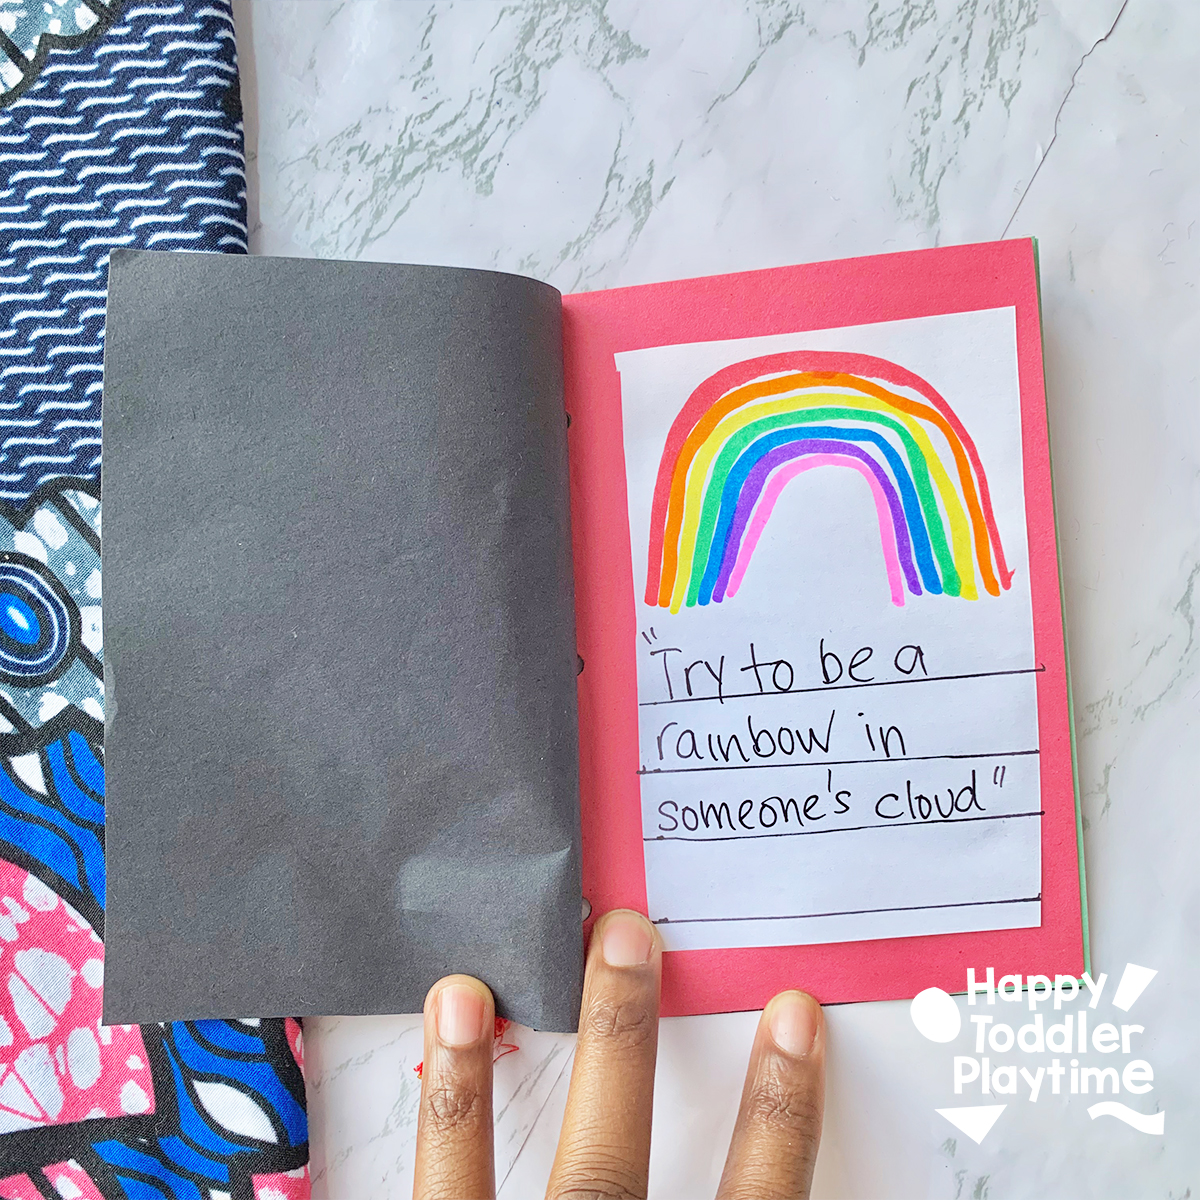 "Try to be a
rainbow in
someone's cloud"
Happy
Toddler
Playtime